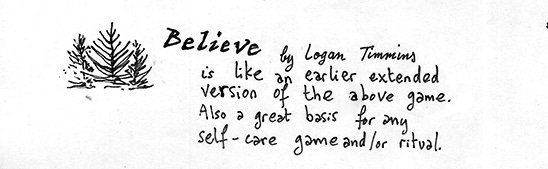 Believe by Logan Timmins
is like an earlier extended
version of the above game.
Also a great basis for any
self-care game and/or ritual.